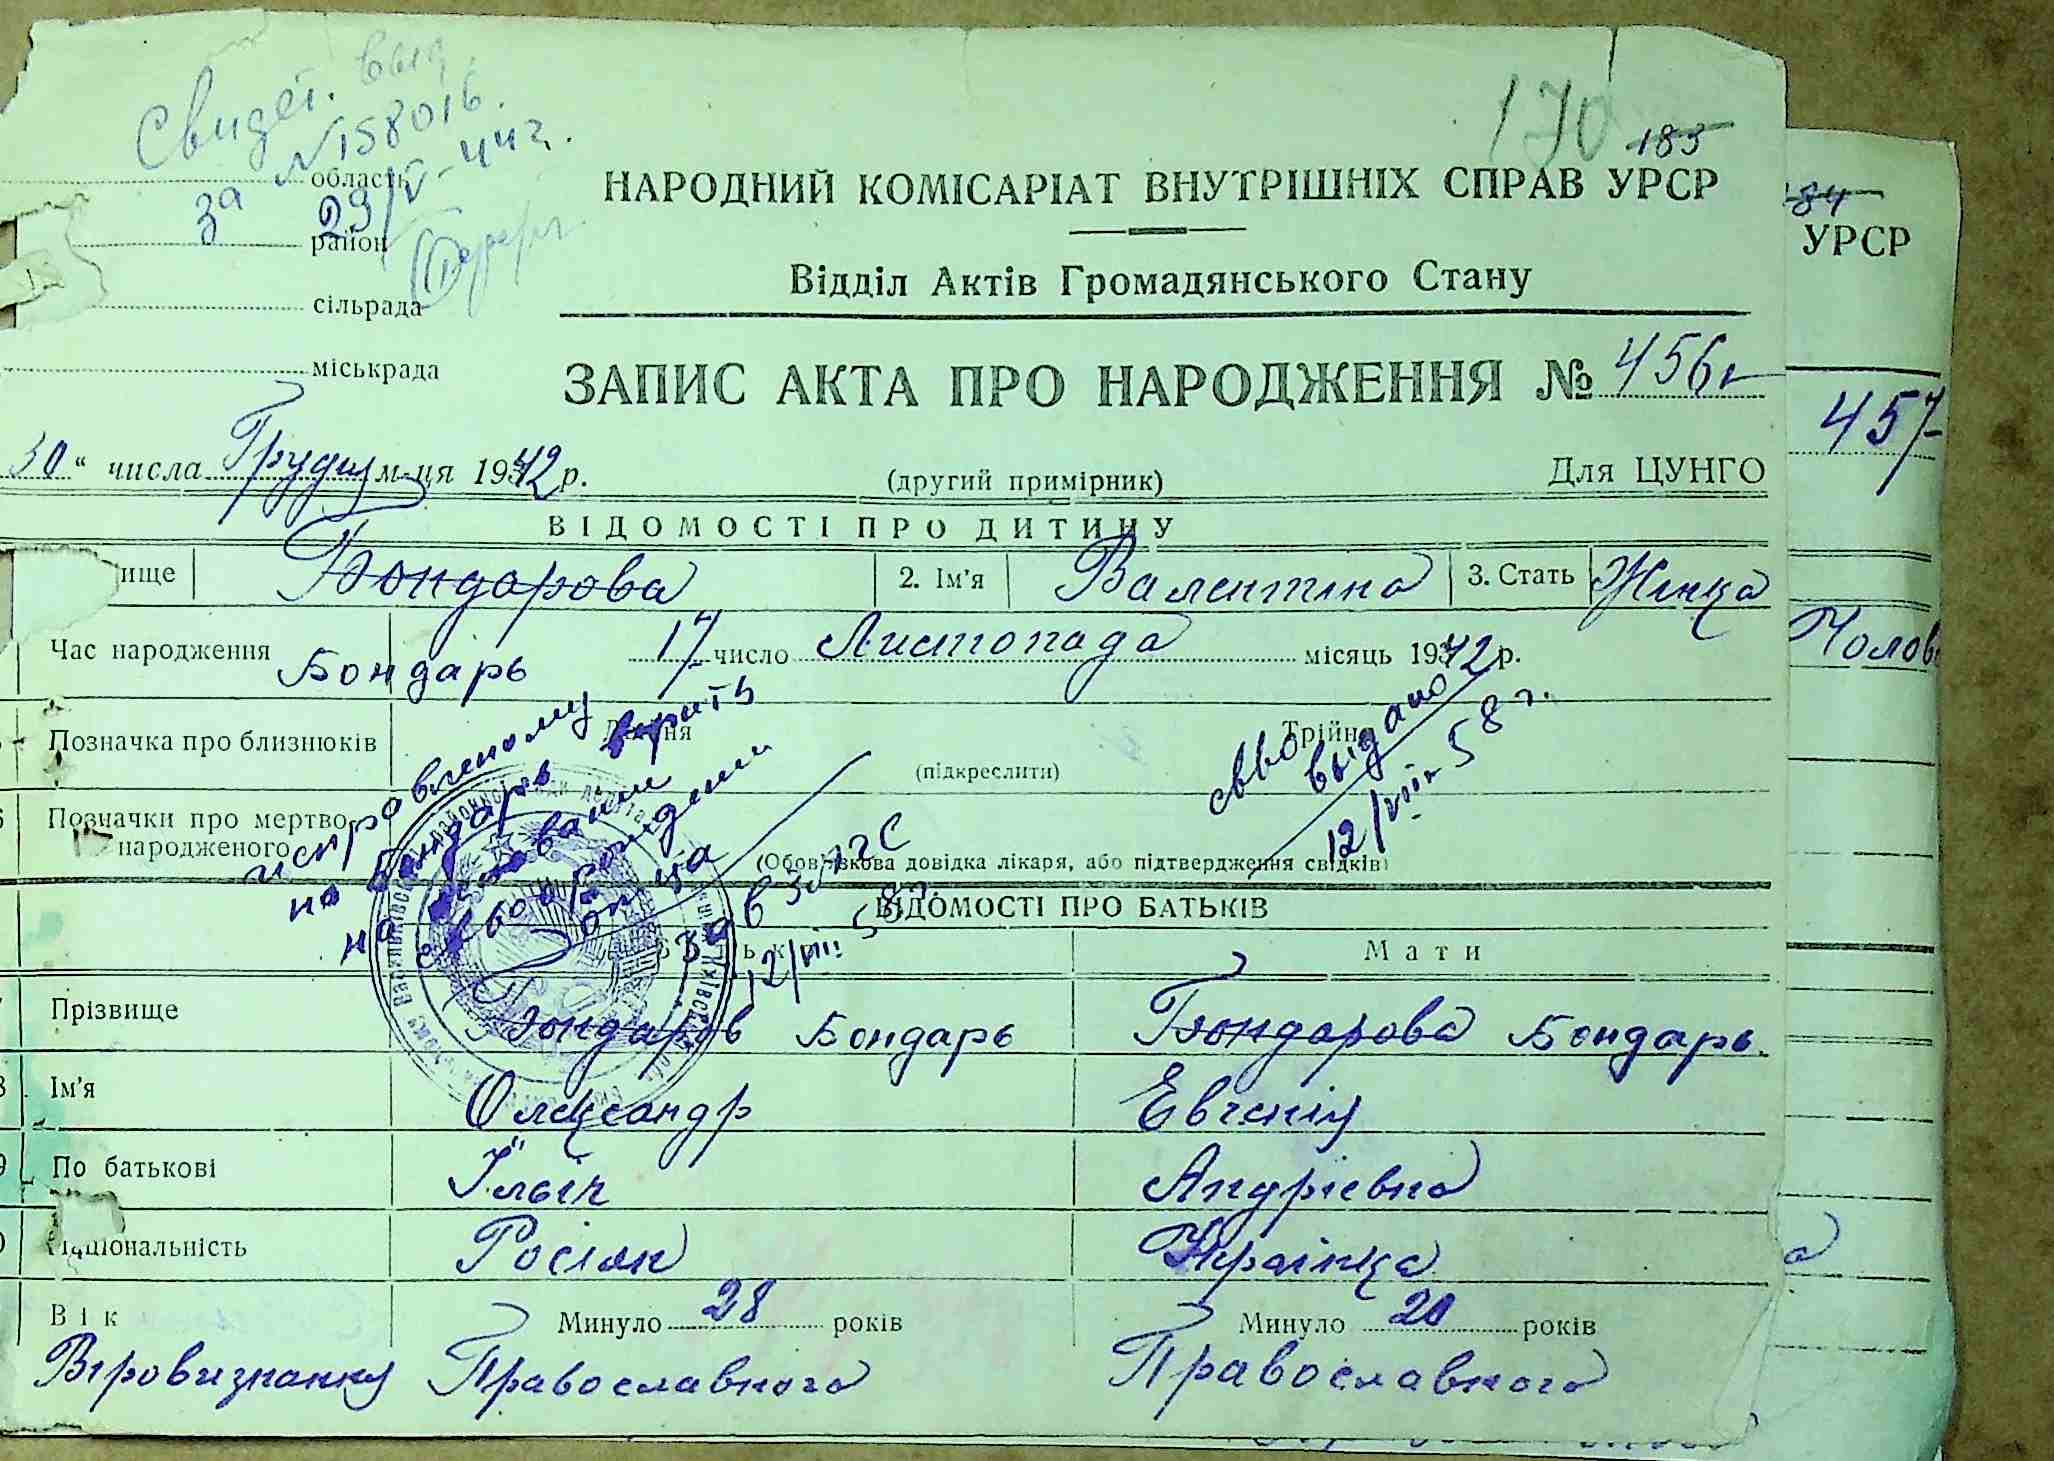 Свидет. выд.
№158016.
за 29/V-44г.
170 185
область
район
сільрада
міськрада
НАРОДНИЙ КОМІСАРІАТ ВНУТРІШНІХ СПРАВ УРСР
Відділ Актів Громадянського Стану
ЗАПИС АКТА ПРО НАРОДЖЕННЯ № 456
30 " числа Грудня м-ця 1942 р.
(другий примірник)
Для ЦУНГО
ВІДОМОСТІ ПРО ДИТИНУ
ище Бондарова 2. Ім'я Валентіна 3. Стать Жінка
Час народження Бондарь 17 число Листопада місяць 1942 р.
Позначка про близнюків
(підкреслити)
Позначки про мертво-
народженого
(Обов'язкова довідка лікаря, або підтвердження свідків)
исправленому
на Бондарь верить
на основании
св-во о рождении
отца
зав ЗАГС
12/VIII 58г.
свво
выдано
12/VIII 58 г.
ВІДОМОСТІ ПРО БАТЬКІВ
Мати
Прізвище Бондаров Бондарь Бондарова Бондарь.
8 Ім'я Олександр Евгенія
9 По батькові Ільіч Андріевна
ціональність Росіян Украінка
Вік Минуло 28 років Минуло 20 років
Віровизнання Православного Православного
84
УРСР
457
Чолов